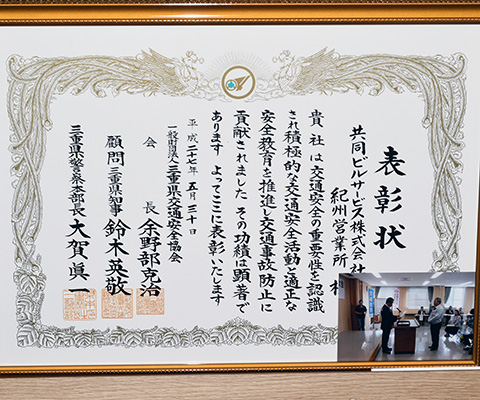 表彰状
共同ビルサービス株式会社
紀州営業所 様
貴社は交通安全の重要性を認識
され積極的な交通安全活動と適正な
安全教育を推進し交通事故防止に
貢献されました その功績は顕著で
あります よってここに表彰いたします
平成二十七年 五月 三十日
一般財団法人 三重県交通安全協会
会長 余野部克治
顧問 三重県知事 鈴木英敬
三重県警察本部長 大賀眞一